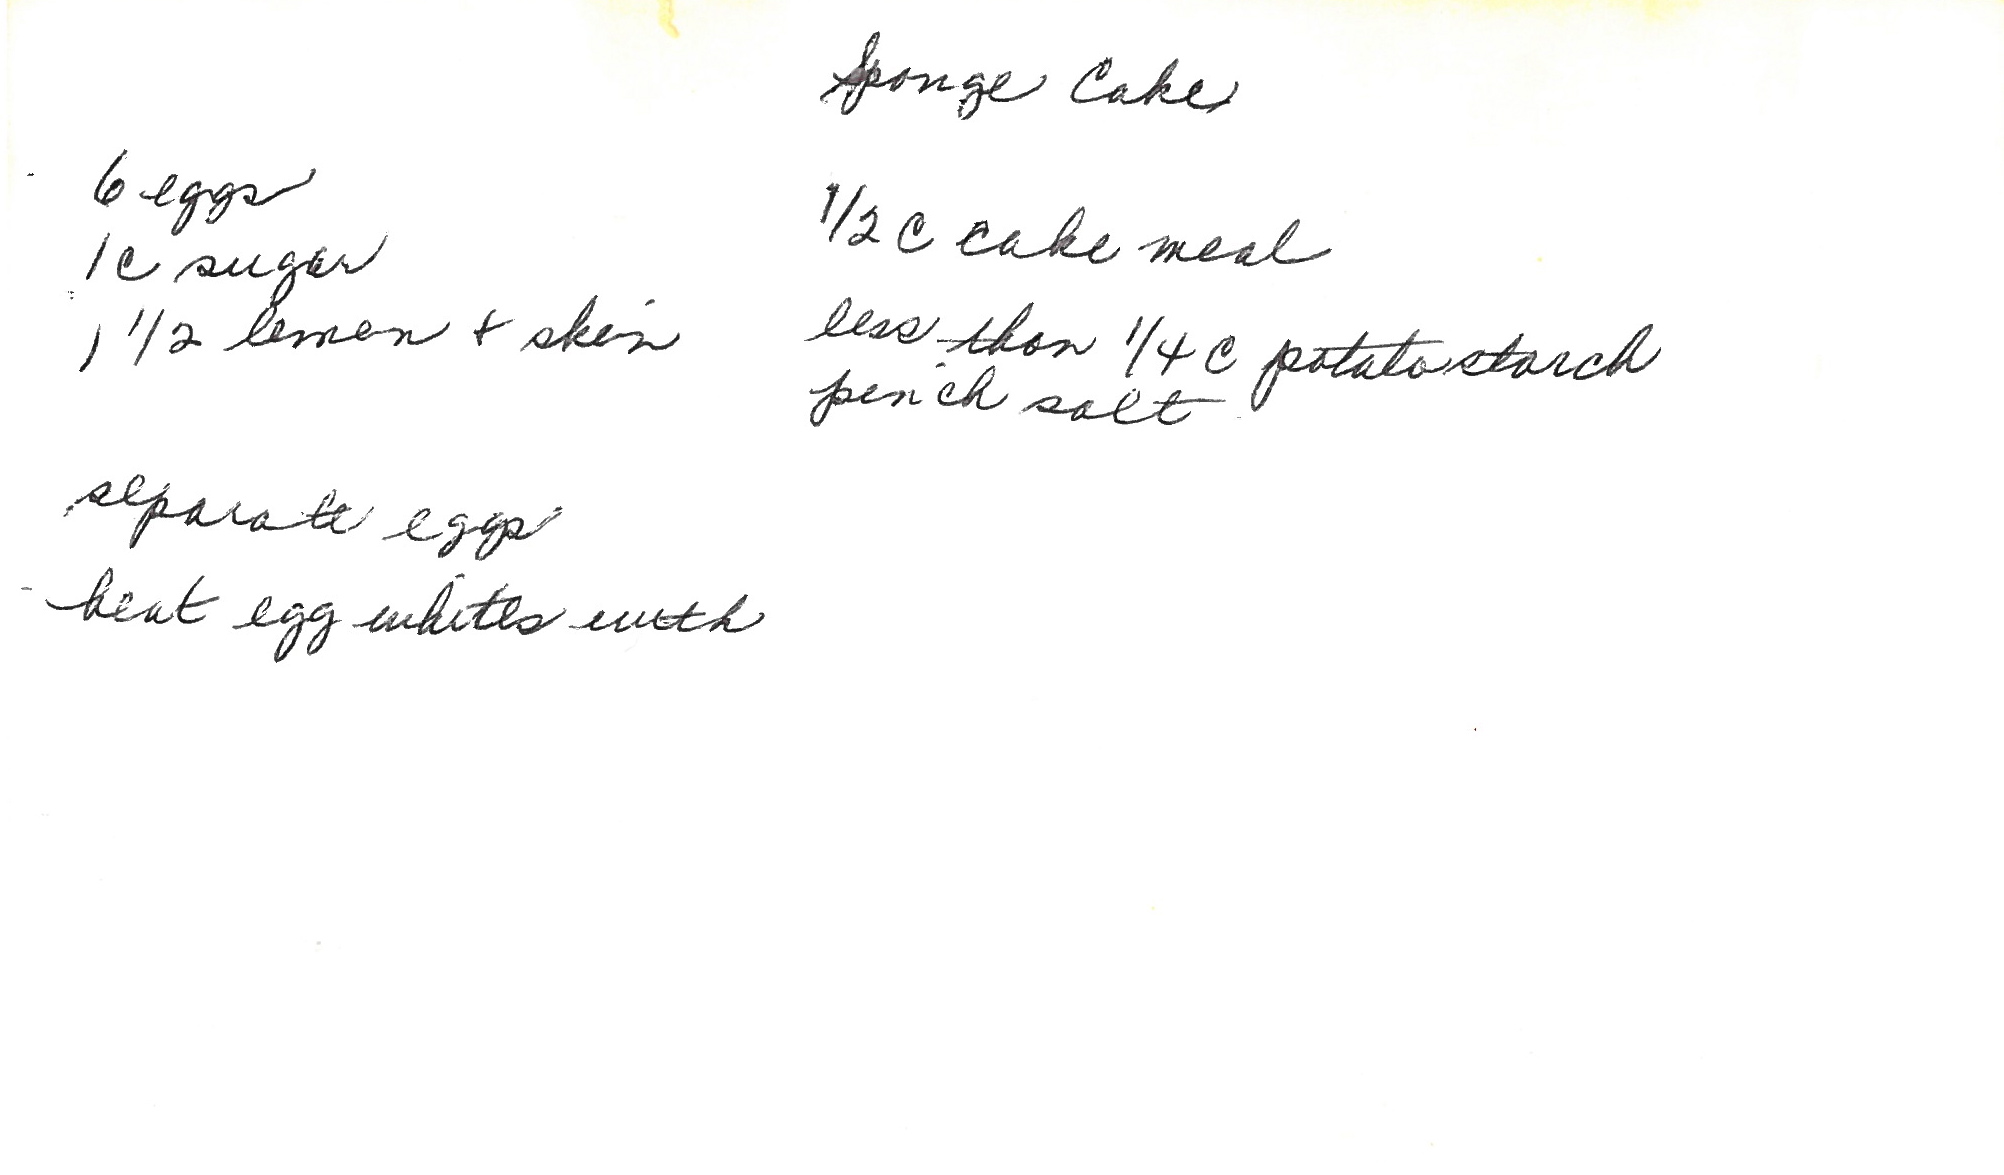 Sponge Cake
6 eggs
1 c sugar
1 1/2 lemon + skin
1/2 c cake meal
less than 1/4 c potato starch
pinch salt
separate eggs
beat egg whites with